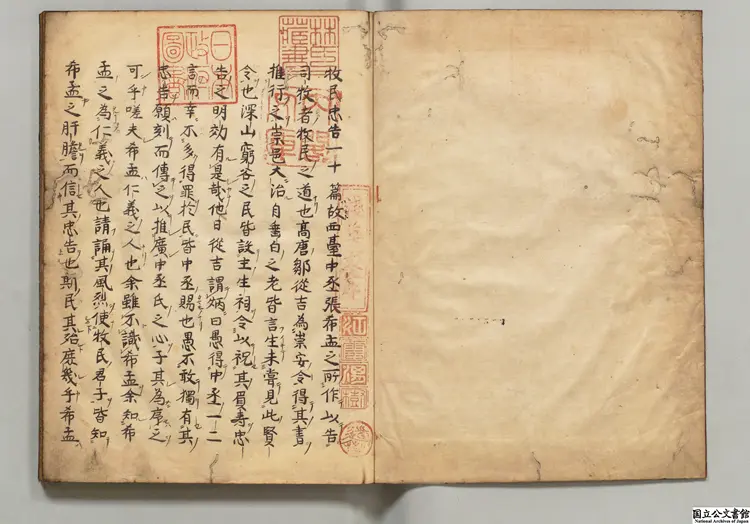 牧民忠告一十篇故西臺中丞張希孟之所作以告
司牧者牧民之道也髙唐鄒從吉為崇安令得其書
推行之崇邑大治自垂白之老皆言生未嘗見此賢
令也深山窮谷之民皆設主生祠令以祝其眉壽忠
告之明効有是哉他日從吉謂炳曰愚得中丞一二
言而幸不多得罪於民皆中丞賜也愚不敢獨有其
忠告願刻而傳之以推廣中丞氏之心子其為序之
可乎嗟夫希孟仁義之人也余雖不識希孟余知希
孟之為仁義之人也請誦其風烈使牧民君子皆知
希孟之肝膽而信其忠告也斯民其殆庶幾乎希孟
林氏藏書
日本政府圖書
江雲渭樹
国立公文書館
National Archives of Japan